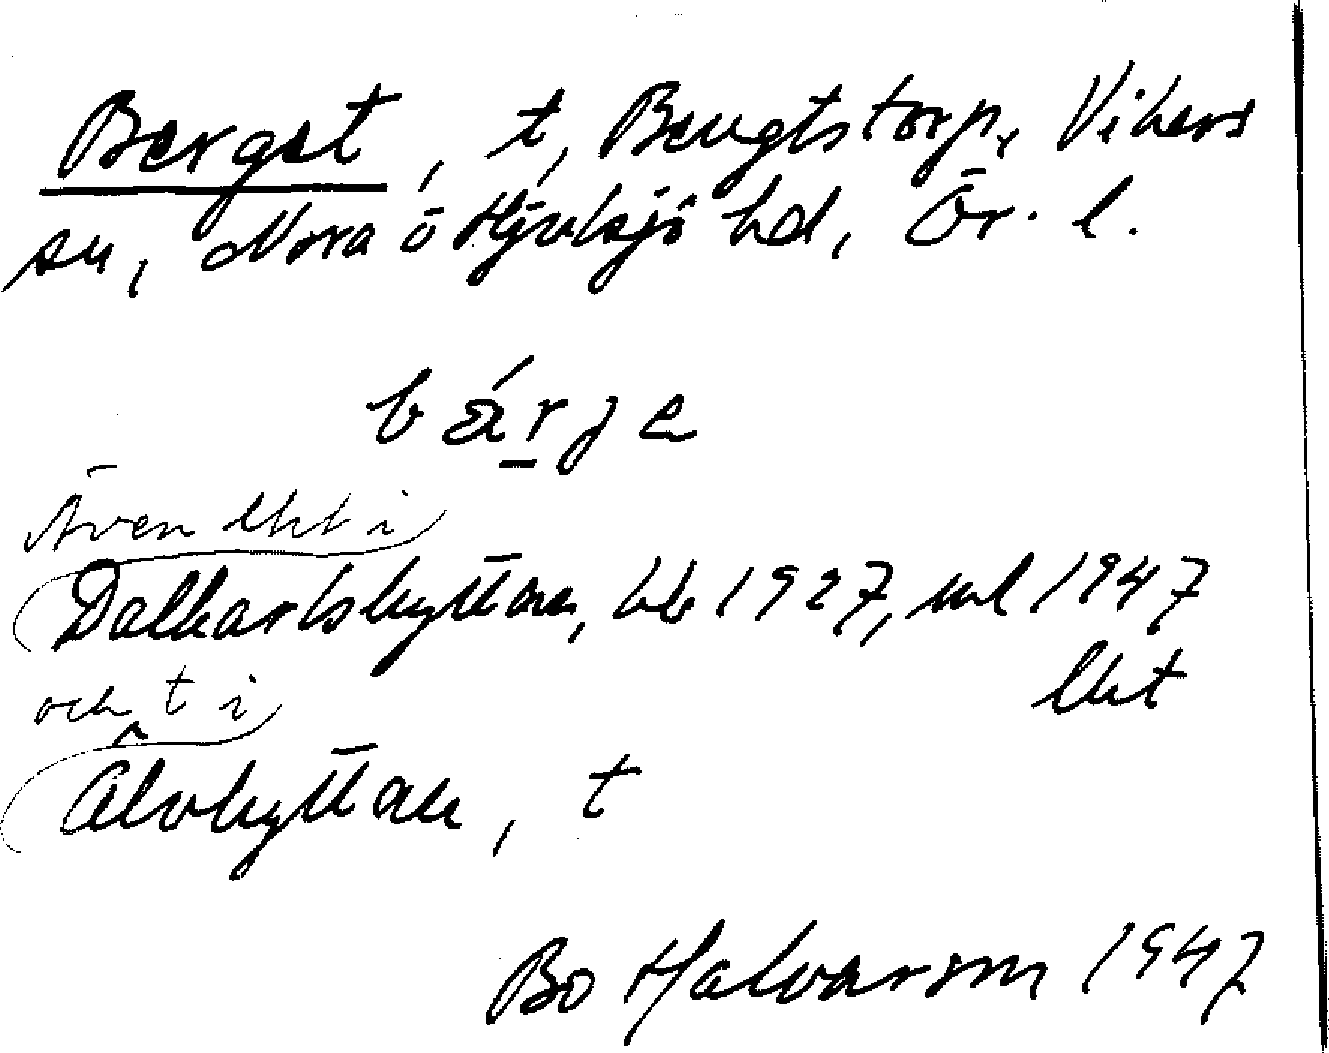 Berget, t, Bengtstorp, Vikers
sn, Nora o Hjulsjö hd, Ör. l.
bä́rje
Även lht i
Dalkarlshyttan, hb 1927, ml 1947
lht
och t i
Älvhyttan, t
Bo Halvarson 1947